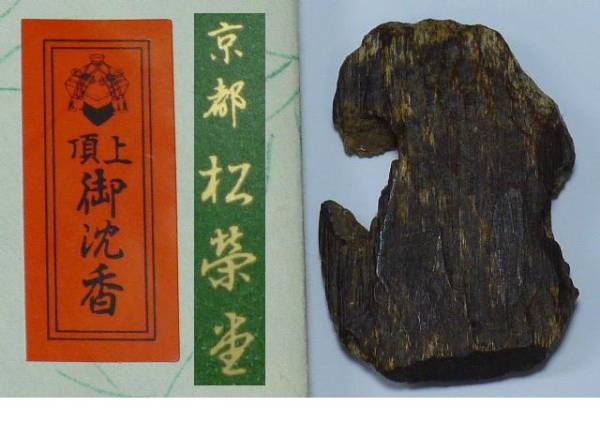 頂上
御沈香
京都
松榮堂